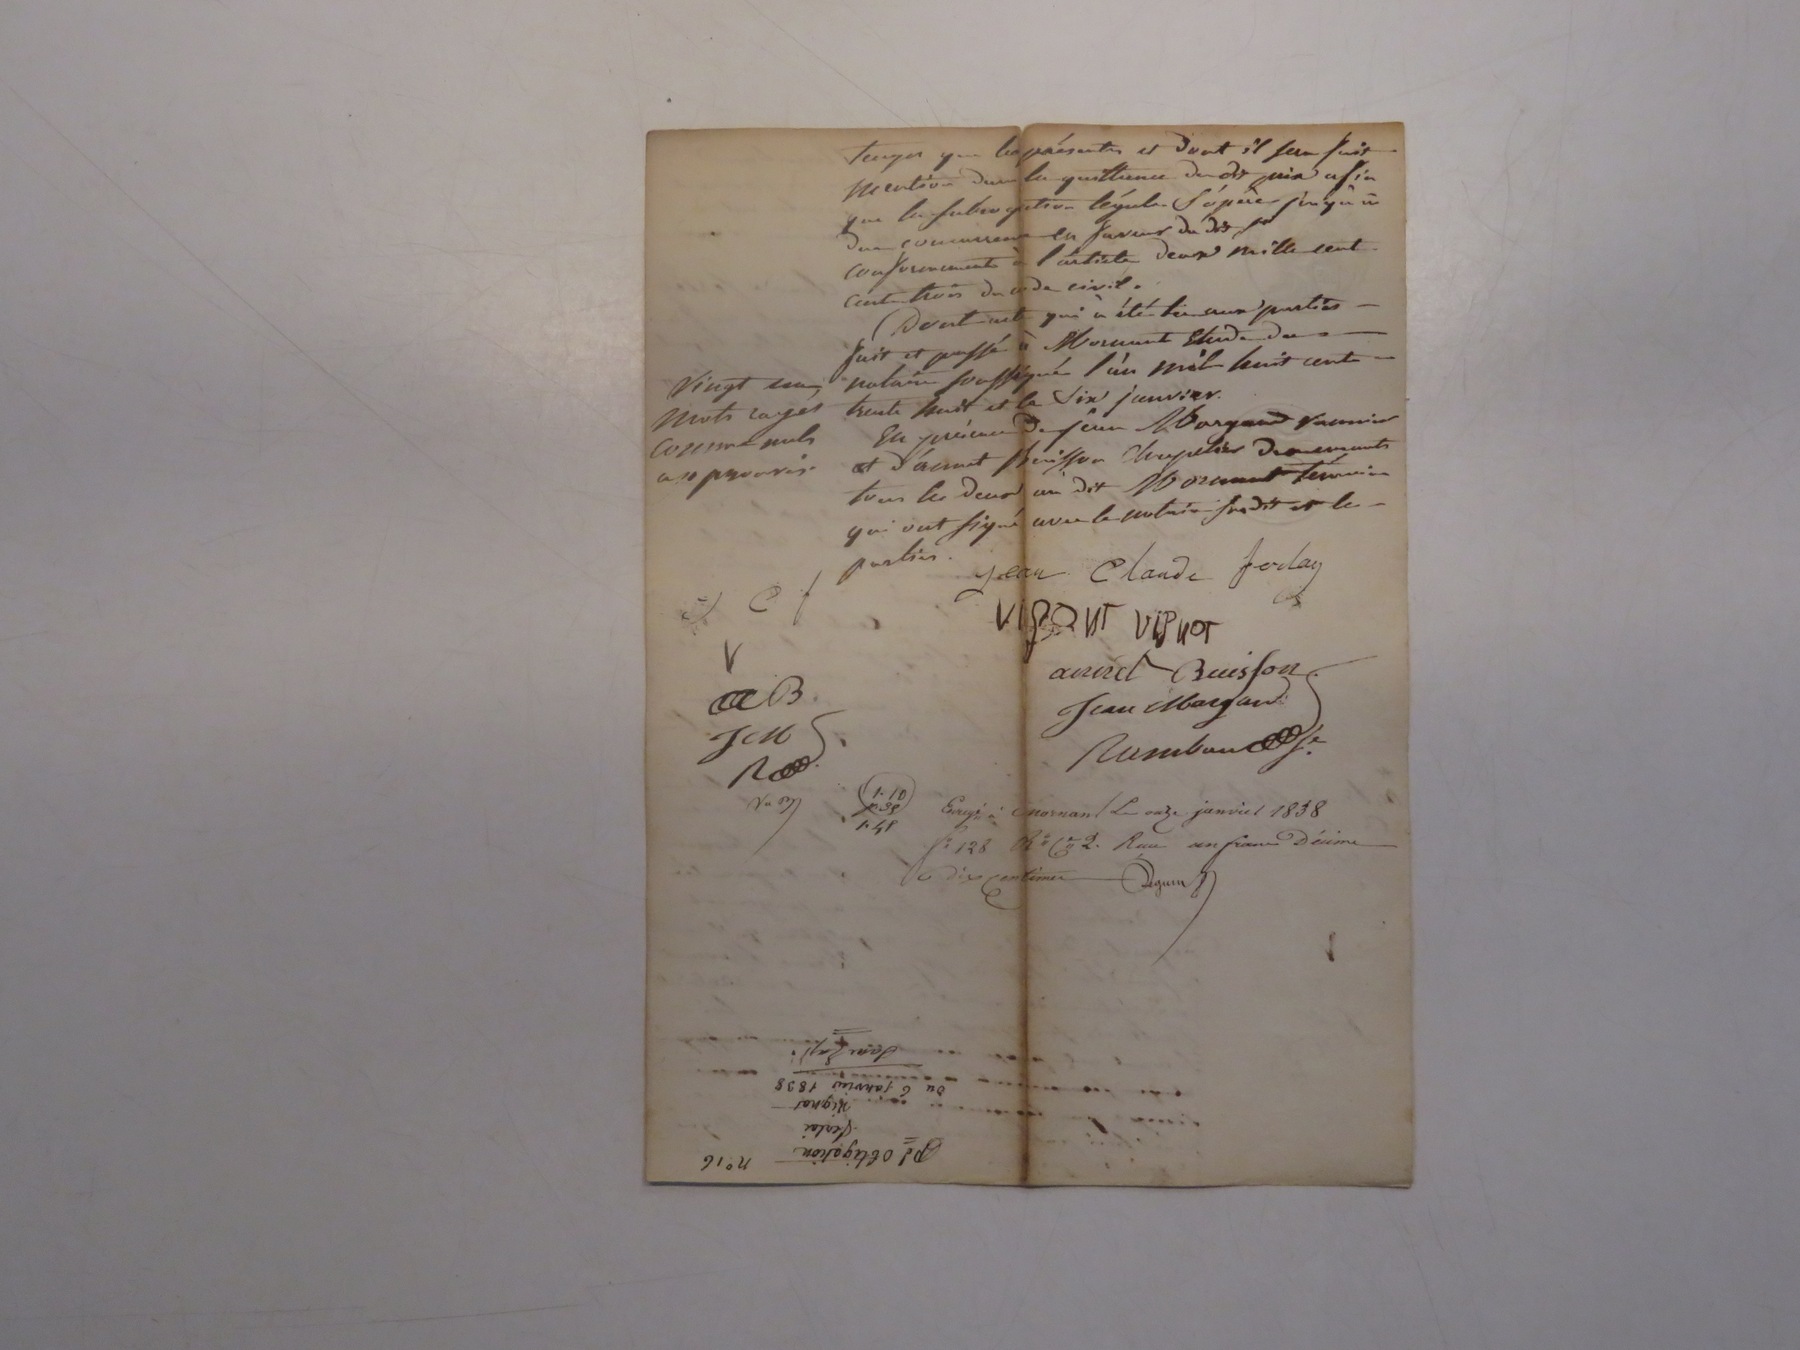 que les présentes et dont il sera fait
mention dans la quittance du dit prix afin
que la subrogation légale s'opère jusqu'à
due concurrence en faveur du dit Sr
conformément à l'article deux mille cent
cent trois du code civil.
Dont acte qui a été lu aux parties
fait et passé à Mornant Etude du
notaire soussigné l'an mil huit cent
trente huit et le six janvier.
En présence de Jean Margand
et Benoit Buisson demeurants
tous les deux au dit Mornant témoins
qui ont signé avec le notaire susdit et le
parties.
Vingt un
mots rayés
comme nuls
approuvés
Jean Claude Ferlay
VIGNOT
Buisson
Jean Margand
C f
V
B
J M
R
1.10
1.48
Enrgé à Mornant Le onze janvier 1838
fo 128 Ro Ce 2. Reçu un franc Décime
dix centimes
n° 16
Obligation
Ferlai
Vignot
du 6 janvier 1838